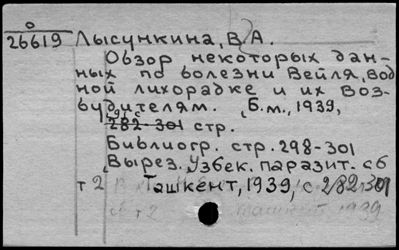 о
26619 Лысункина, В. А.
Обзор некоторых дан-
ных по болезни Вейля, вод
ной лихорадке и их воз-
будителям. Б.м., 1939,
282-301 стр.
Библиогр. стр. 298-301
Вырез. Узбек. паразит. сб
т 2 Ташкент, 1939, с 282-301